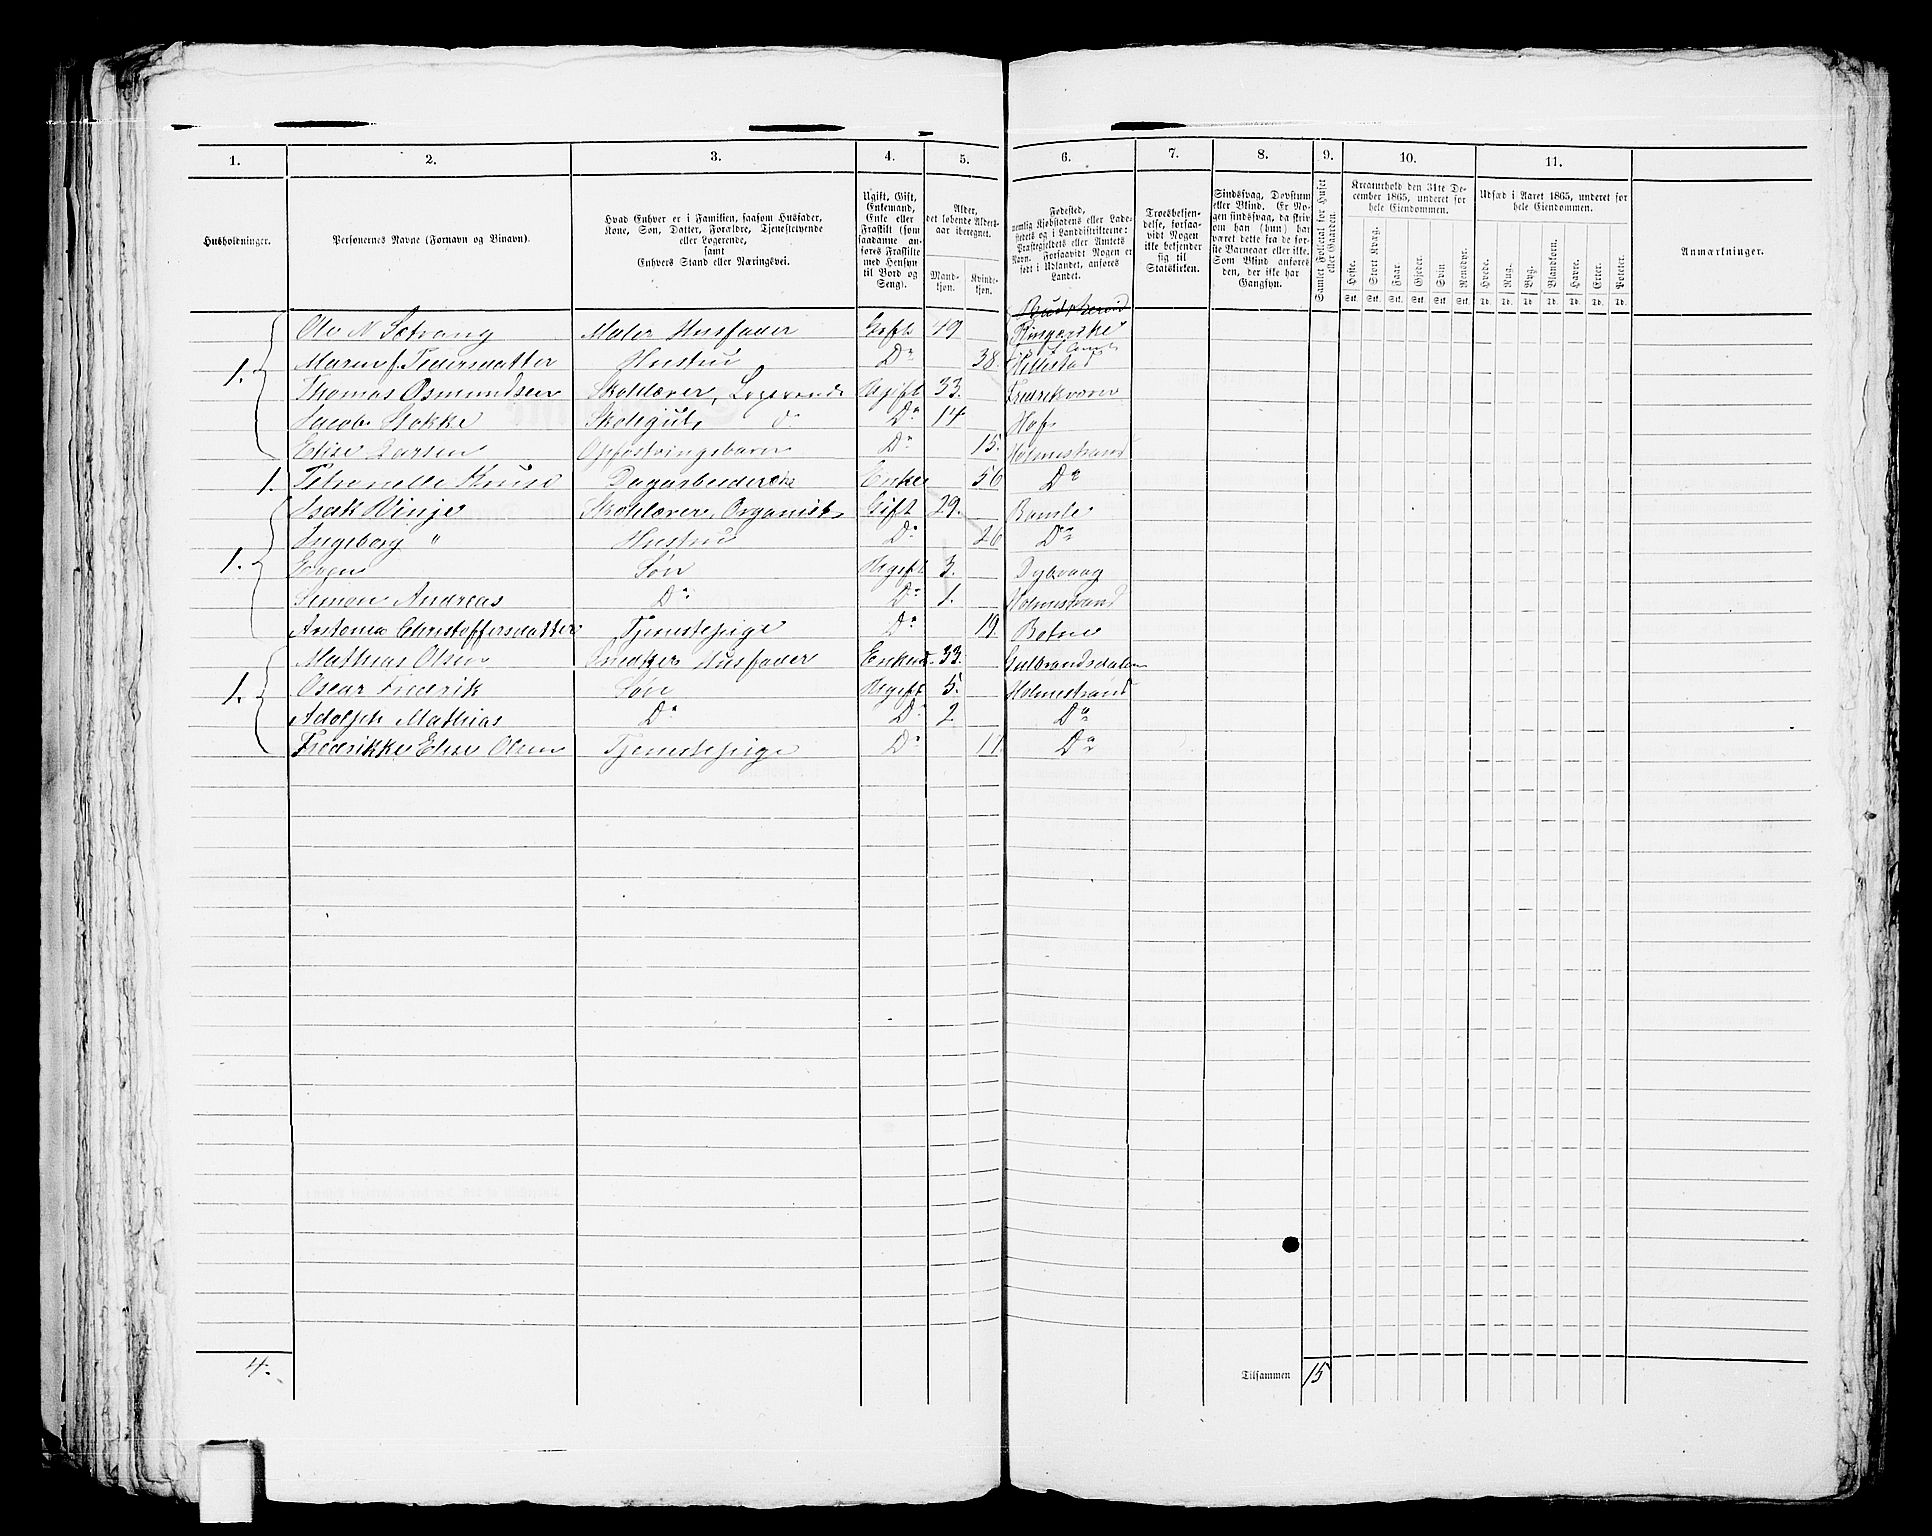 1. 2. 3. 4. 5. 6. 7. 8. 9. 10. 11.
Husholdninger.
Personernes Navne (Fornavn og Binavn).
Hvad Enhver er i Familien, saasom Husfader,
Kone, Søn, Datter, Forældre, Tjenestetyende
eller Logerende,
samt
Enhvers Stand eller Næringsvei.
Ugift, Gift,
Enkemand,
Enke eller
Fraskilt (som
saadanne an-
føres Fraskilte
med Hensyn
til Bord og
Seng).
Alder,
det løbende Alders-
aar iberegnet.
Mand-
kjøn.
Kvinde-
kjøn.
Fødested,
nemlig Kjøbstadens eller Lade-
stedets og i Landdistrikterne:
Præstegjeldets eller Amtets
Navn. Forsaavidt Nogen er
født i Udlandet, anføres
Landet.
Troesbekjen-
delse, forsaa-
vidt Nogen
ikke bekjender
sig til
Statskirken.
Sindssvag, Døvstum
eller Blind. Er No-
gen sindssvag, da skriv
om han (hun) har
været dette fra de før-
ste Barneaar eller ikke.
Som Blind anføres
den, der ikke har
Gangsyn.
Samlet Folketal for Huset
eller Gaarden.
Kreaturhold den 31te De-
cember 1865, underet for
hele Eiendommen.
Heste. Stort Kvæg. Faar. Gjeder. Svin Rensdyr.
Stk. Stk. Stk. Stk. Stk. Stk.
Udsæd i Aaret 1865, underet for
hele Eiendommen.
Hvede. Rug. Byg. Blandkorn. Havre. Erter. Poteter.
Td. Td. Td. Td. Td. Td. Td.
Anmærkninger.
Ole N Sætrang Maler Husfader Gift 49 Ringerike
1. Maren f. Pedersdatter Hustru D° 38. Hillestad
Thomas Osmundsen Skolelærer, Logerende Ugift 33. Fredriksværn
Jacob Stokke Skolegut D° 14 Hof
Elise Larsen Opfostringsbarn D° 15. Holmestrand
1. Petronelle Knuso Dagarbeiderske Enke 56 D°
Isak Vinje Skolelærer, Organist Gift 29. Bamle
Ingeborg " Hustru D° 26 D°
1. Even Søn Ugift 3. Dybvaag
Simon Andreas D° D° 1. Holmestrand
Antonia Christoffersdatter Tjenestepige D° 19. Botne
Mathias Olsen Snedker Husfader Enkem. 33. Gulbrandsdalen
1. Oscar Fredrik Søn Ugift 5. Holmestrand
Adolph Mathias D° D° 2 D°
Frederikke Elise Olsen Tjenestepige D° 11. D°
4. Tilsammen 15